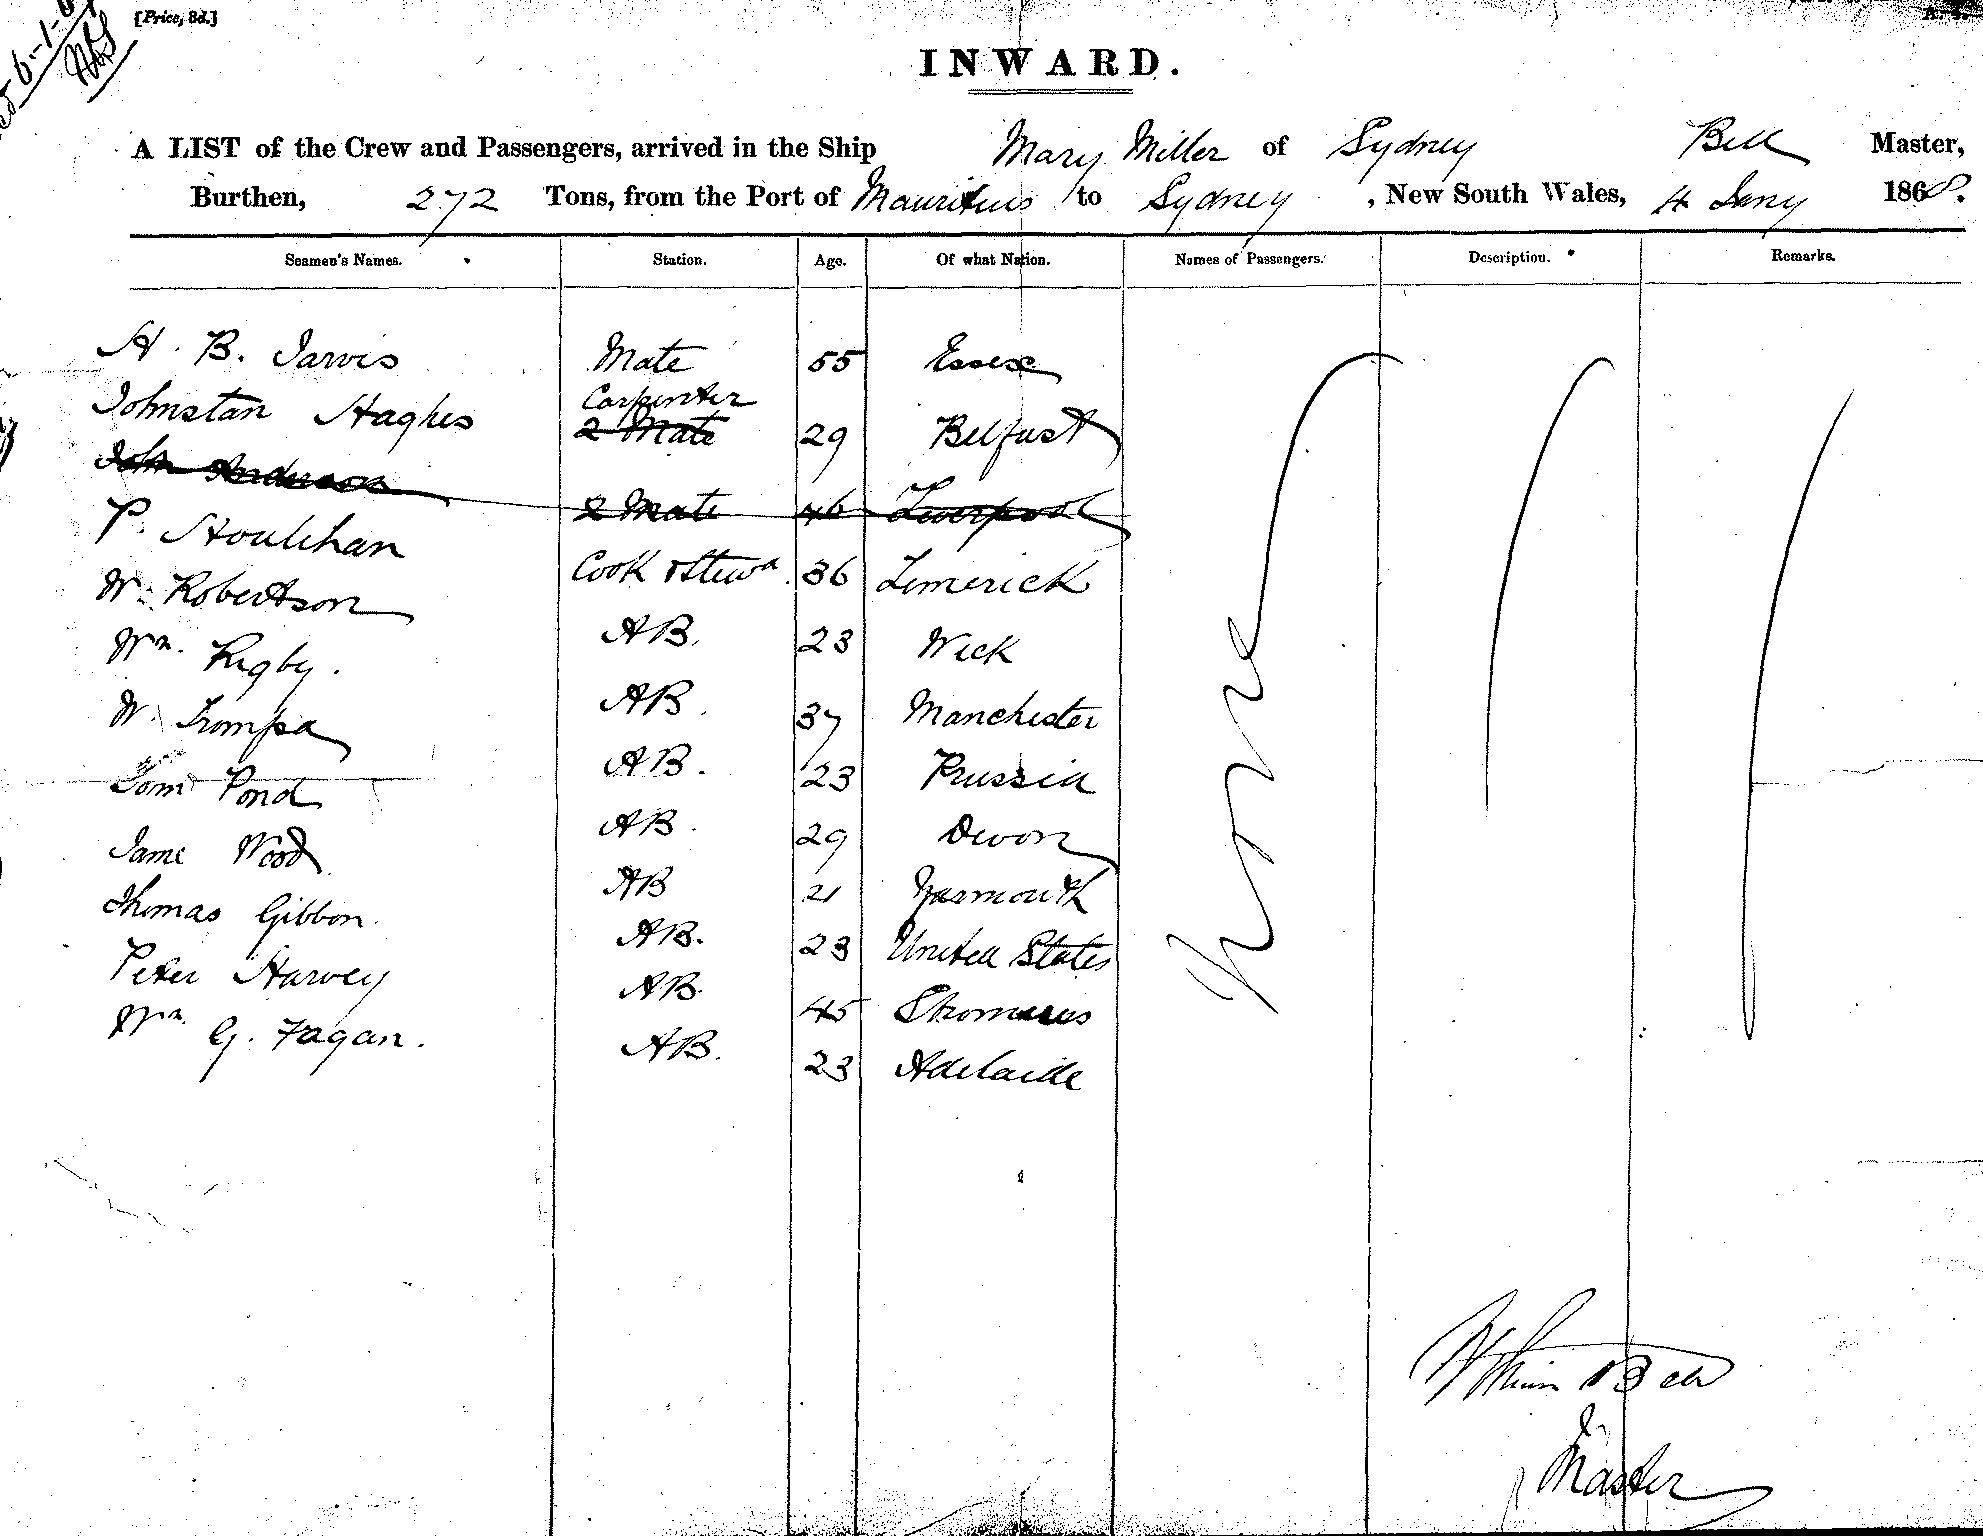 [Price, 3d.]
INWARD.
A LIST of the Crew and Passengers, arrived in the Ship Mary Miller of Sydney Bell Master,
Burthen, 272 Tons, from the Port of Mauritius to Sydney , New South Wales, 4 Jany 1868.
Seamen's Names. Station. Age. Of what Nation. Names of Passengers. Description. Remarks.
H. B. Jarvis Mate 55 Essex
Carpenter
Johnstan Haghes 2 Mate 29 Belfast
John Anderson 2 Mate 46 Liverpool
P. Houlihan Cook & Stewd. 36 Limerick
W. Robertson AB. 23 Wick
Wm. Rigby. AB. 37 Manchester
W. Trompa AB. 23 Prussia
Tom Pond AB. 29 Devon
Jame Wood AB 21 Yarmouth
Thomas Gibbon. AB. 23 United States
Peter Harvey AB. 45
Wm. G. Fagan. AB. 23 Adelaide
None
William Bell
Master